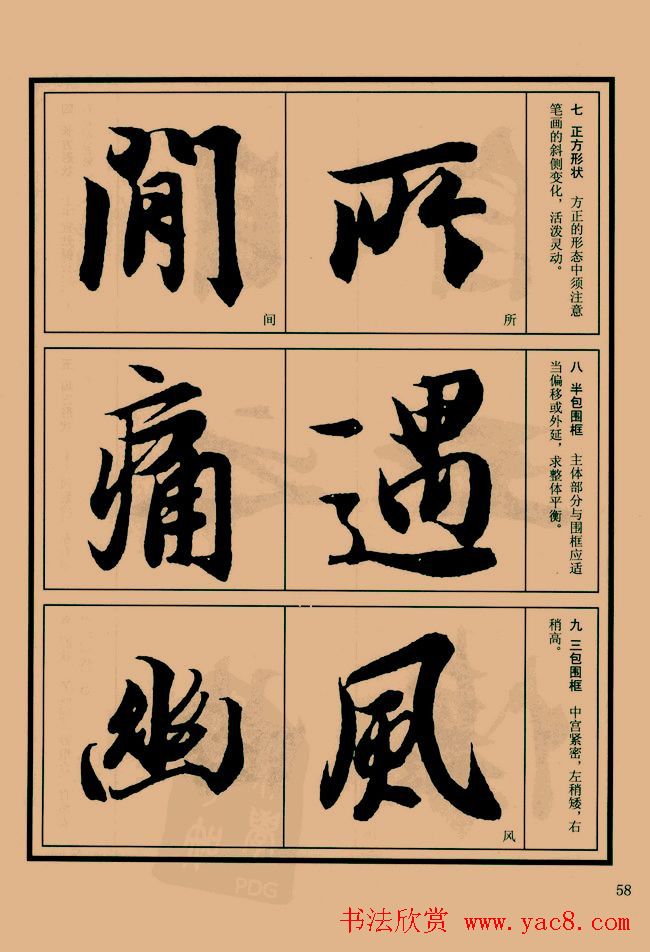 七 正方形状 方正的形态中须注意
笔画的斜侧变化，活泼灵动。
所
所
間
间
八 半包围框 主体部分与围框应适
当偏移或外延，求整体平衡。
遇
痛
九 三包围框 中宫紧密，左稍矮，右
稍高。
風
风
幽
PDG
58
书法欣赏 www.yac8.com